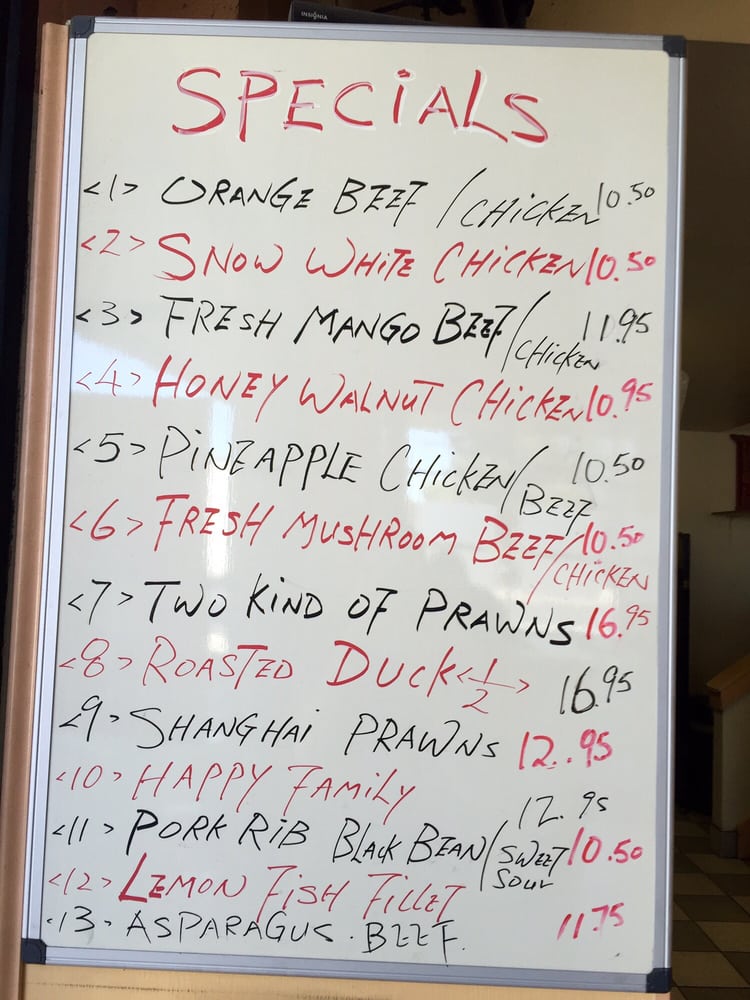 INSIGNIA
SPECIALS
<1> ORANGE BEEF / CHICKEN 10.50
<2> SNOW WHITE CHICKEN 10.50
<3> FRESH MANGO BEEF / CHICKEN 11.95
<4> HONEY WALNUT CHICKEN 10.95
<5> PINEAPPLE CHICKEN / BEEF 10.50
<6> FRESH MUSHROOM BEEF / CHICKEN 10.50
<7> TWO KIND OF PRAWNS 16.95
<8> ROASTED DUCK <1/2> 16.95
<9> SHANGHAI PRAWNS 12.95
<10> HAPPY FAMILY 12.95
<11> PORK RIB BLACK BEAN / SWEET SOUR 10.50
<12> LEMON FISH FILLET
<13> ASPARAGUS BEEF. 11.75